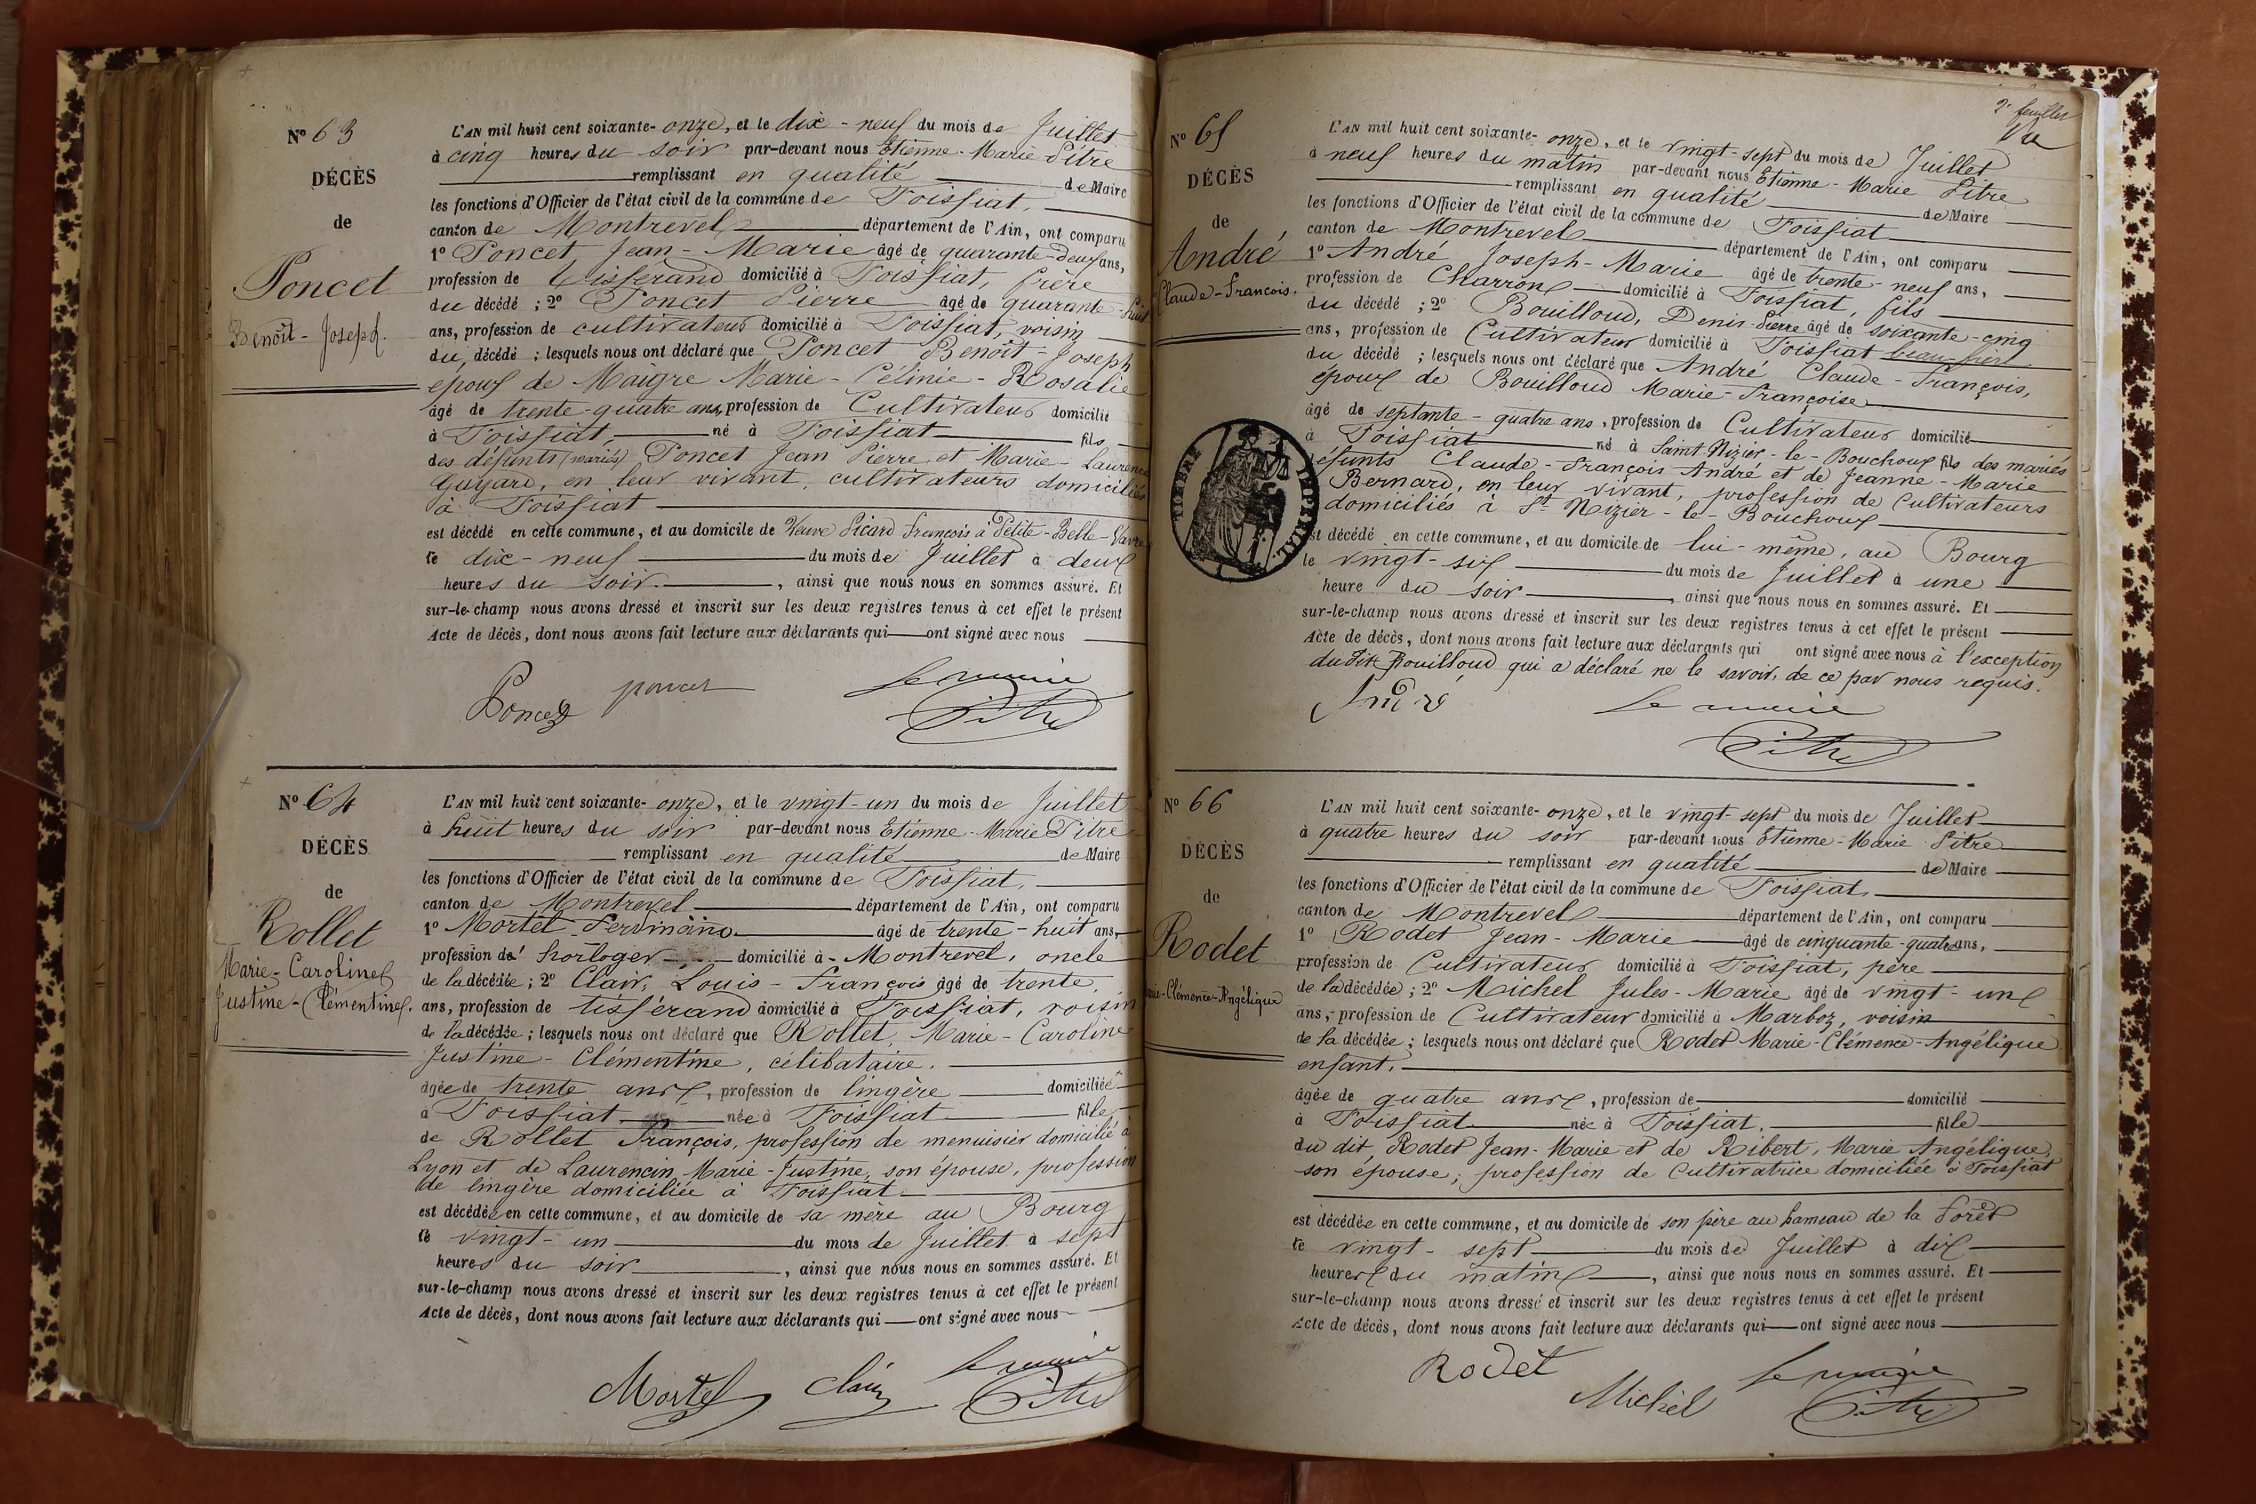 Nº 63
DÉCÈS
de
Poncet
Benoît-Joseph.
L'AN mil huit cent soixante-onze, et le dix-neuf du mois de Juillet
à cinq heures du soir par-devant nous Etienne-Marie Pitre
remplissant en qualité de Maire
les fonctions d'Officier de l'état civil de la commune de Foissiat,
canton de Montrevel département de l'Ain, ont comparu
1º Poncet Jean-Marie âgé de quarante-deux ans,
profession de tisserand domicilié à Foissiat, frère
du décédé ; 2º Poncet Pierre âgé de quarante-huit
ans, profession de cultivateur domicilié à Foissiat, voisin
du décédé ; lesquels nous ont déclaré que Poncet Benoît-Joseph
époux de Maigre Marie-Célinie-Rosalie
âgé de trente-quatre ans, profession de Cultivateur domicilié
à Foissiat, né à Foissiat fils
des défunts (mariés) Poncet Jean Pierre et Marie-Laurence
Guyard, en leur vivant, cultivateurs domiciliés
à Foissiat
est décédé en cette commune, et au domicile de Veuve Picard François à Petite-Belle-
le dix-neuf du mois de Juillet à deux
heures du soir, ainsi que nous nous en sommes assuré. Et
sur-le-champ nous avons dressé et inscrit sur les deux registres tenus à cet effet le présent
Acte de décès, dont nous avons fait lecture aux déclarants qui ont signé avec nous
Poncet poncet le maire
Pitre
Nº 64
DÉCÈS
de
Rollet
Marie-Caroline
Justine-Clémentine.
L'AN mil huit cent soixante-onze, et le vingt-un du mois de Juillet
à huit heures du soir par-devant nous Etienne-Marie Pitre
remplissant en qualité de Maire
les fonctions d'Officier de l'état civil de la commune de Foissiat,
canton de Montrevel département de l'Ain, ont comparu
1º Mortel Ferdinand âgé de trente-huit ans,
profession de horloger domicilié à Montrevel, oncle
de la décédée ; 2º Clair, Louis-François âgé de trente
ans, profession de tisserand domicilié à Foissiat, voisin
de la décédée ; lesquels nous ont déclaré que Rollet, Marie-Caroline
Justine-Clémentine, célibataire.
âgée de trente ans, profession de lingère domiciliée
à Foissiat née à Foissiat fille
de Rollet François, profession de menuisier domicilié à
Lyon et de Laurencin Marie-Justine, son épouse, profession
de lingère domiciliée à Foissiat.
est décédée en cette commune, et au domicile de sa mère au Bourg
le vingt-un du mois de Juillet à sept
heures du soir, ainsi que nous nous en sommes assuré. Et
sur-le-champ nous avons dressé et inscrit sur les deux registres tenus à cet effet le présent
Acte de décès, dont nous avons fait lecture aux déclarants qui ont signé avec nous
Mortel Clair le maire
Pitre
2e feuillet
Nº 65
DÉCÈS
de
André
Claude-François.
L'AN mil huit cent soixante-onze, et le vingt-sept du mois de Juillet
à neuf heures du matin par-devant nous Etienne-Marie Pitre
remplissant en qualité de Maire
les fonctions d'Officier de l'état civil de la commune de Foissiat
canton de Montrevel département de l'Ain, ont comparu
1º André Joseph-Marie âgé de trente-neuf ans,
profession de Charron domicilié à Foissiat, fils
du décédé ; 2º Bouilloud, Denis-Pierre âgé de soixante-cinq
ans, profession de Cultivateur domicilié à Foissiat beau-frère
du décédé ; lesquels nous ont déclaré que André Claude-François,
époux de Bouilloud Marie-Françoise
âgé de septante-quatre ans, profession de Cultivateur domicilié
à Foissiat né à Saint Nizier-le-Bouchoux fils des mariés
défunts Claude-François André et de Jeanne-Marie
Bernard, en leur vivant, profession de Cultivateurs
domiciliés à St Nizier-le-Bouchoux
est décédé en cette commune, et au domicile de lui-même, au Bourg
le vingt-six du mois de Juillet à une
heure du soir, ainsi que nous nous en sommes assuré. Et
sur-le-champ nous avons dressé et inscrit sur les deux registres tenus à cet effet le présent
Acte de décès, dont nous avons fait lecture aux déclarants qui ont signé avec nous à l'exception
du dit Bouilloud qui a déclaré ne le savoir, de ce par nous requis.
TIMBRE IMPÉRIAL
André le maire
Pitre
Nº 66
DÉCÈS
de
Rodet
Marie-Clémence-Angélique
L'AN mil huit cent soixante-onze, et le vingt-sept du mois de Juillet
à quatre heures du soir par-devant nous Etienne-Marie Pitre
remplissant en qualité de Maire
les fonctions d'Officier de l'état civil de la commune de Foissiat
canton de Montrevel département de l'Ain, ont comparu
1º Rodet Jean-Marie âgé de cinquante-quatre ans,
profession de Cultivateur domicilié à Foissiat, père
de la décédée ; 2º Michel Jules-Marie âgé de vingt-un
ans, profession de Cultivateur domicilié à Marboz, voisin
de la décédée ; lesquels nous ont déclaré que Rodet Marie-Clémence-Angélique
enfant,
âgée de quatre ans, profession de domicilié
à Foissiat née à Foissiat. fille
du dit Rodet Jean-Marie et de Ribert, Marie Angélique,
son épouse, profession de Cultivatrice domiciliée à Foissiat
est décédée en cette commune, et au domicile de son père au hameau de la Forêt
le vingt-sept du mois de Juillet à dix
heures du matin, ainsi que nous nous en sommes assuré. Et
sur-le-champ nous avons dressé et inscrit sur les deux registres tenus à cet effet le présent
Acte de décès, dont nous avons fait lecture aux déclarants qui ont signé avec nous
Rodet Michel le maire
Pitre